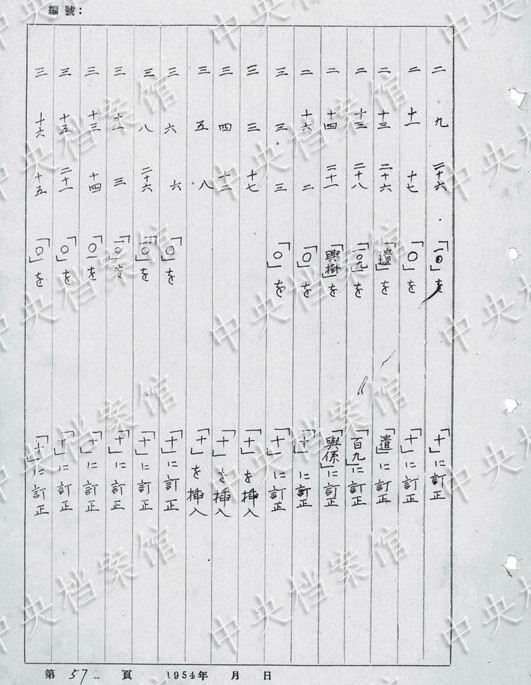 編號：
二 九 二十六 「一〇」を 「十」に訂正
二 十一 十七 「〇」を 「十」に訂正
二 十三 二十六 「遣」を 「遺」に訂正
二 十三 二十八 「一〇九」を 「百九」に訂正
二 十四 二十一 「興掛」を 「興係」に訂正
二 十六 二 「〇」を 「十」に訂正
三 三 三 「〇」を 「十」に訂正
三 三 十七 「十」を挿入
三 四 十二 「十」を挿入
三 五 八 「十」を挿入
三 六 六 「〇一」を 「十」に訂正
三 八 二十六 を 「十」に訂正
三 十一 三 「一〇」を 「十」に訂正
三 十三 十四 「〇一」を 「十」に訂正
三 十五 二十一 「〇」を 「十」に訂正
三 十六 十五 「〇」を 「十」に訂正
第 57 頁 1954年 月 日
中央档案馆